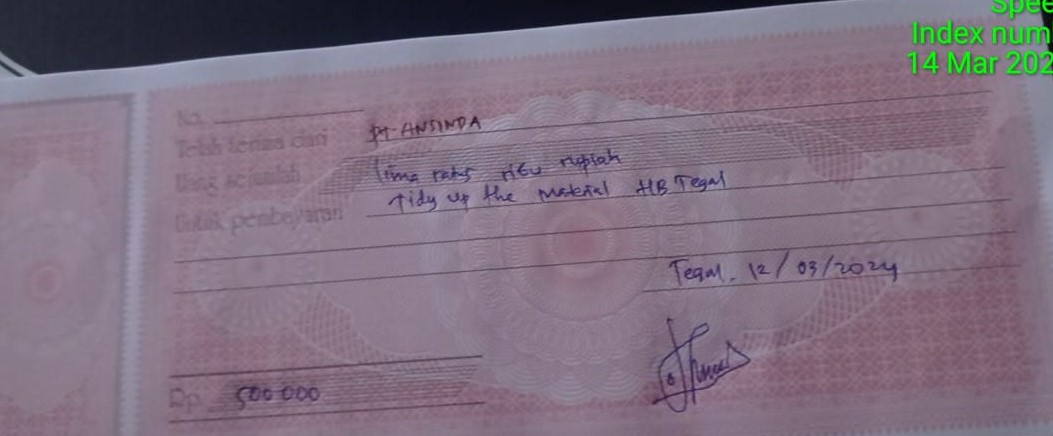 Spee
Index num
14 Mar 202
No.
Telah terima dari PT ANSINDA
Uang sejumlah lima ratus ribu rupiah
Untuk pembayaran Tidy up the material HB Tegal
Tegal. 12/03/2024
Rp. 500.000